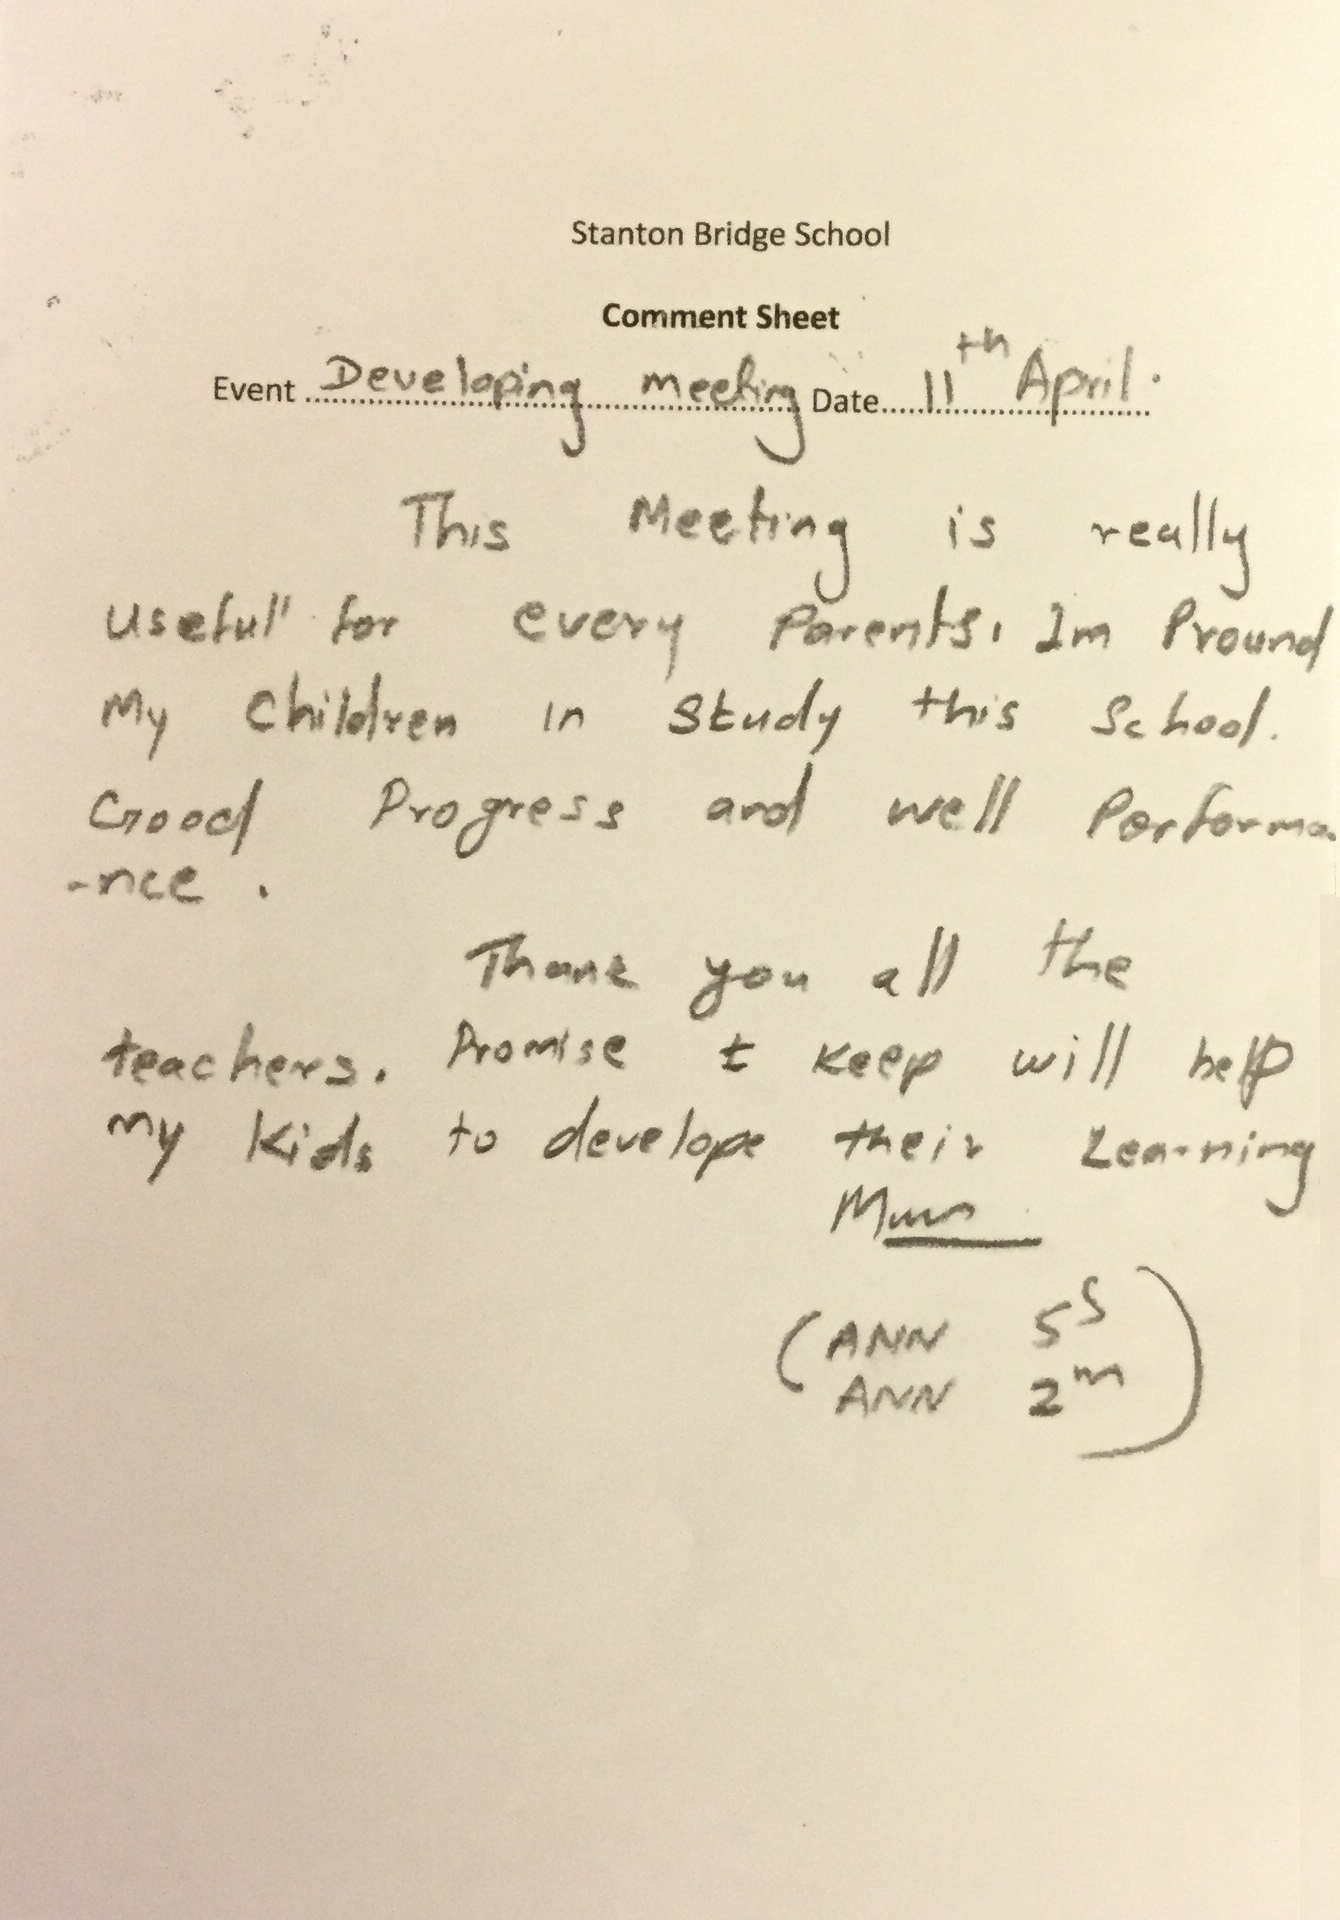 Stanton Bridge School
Comment Sheet
Event Developing meeting Date 11th April.
This Meeting is really
Useful for every Parents. Im Pround
My Children in Study this School.
Good Progress and well Performa
-nce .
Thank you all the
teachers. Promise t keep will help
my kids to develope their Learning
Mum
(ANN 5S
ANN 2m)